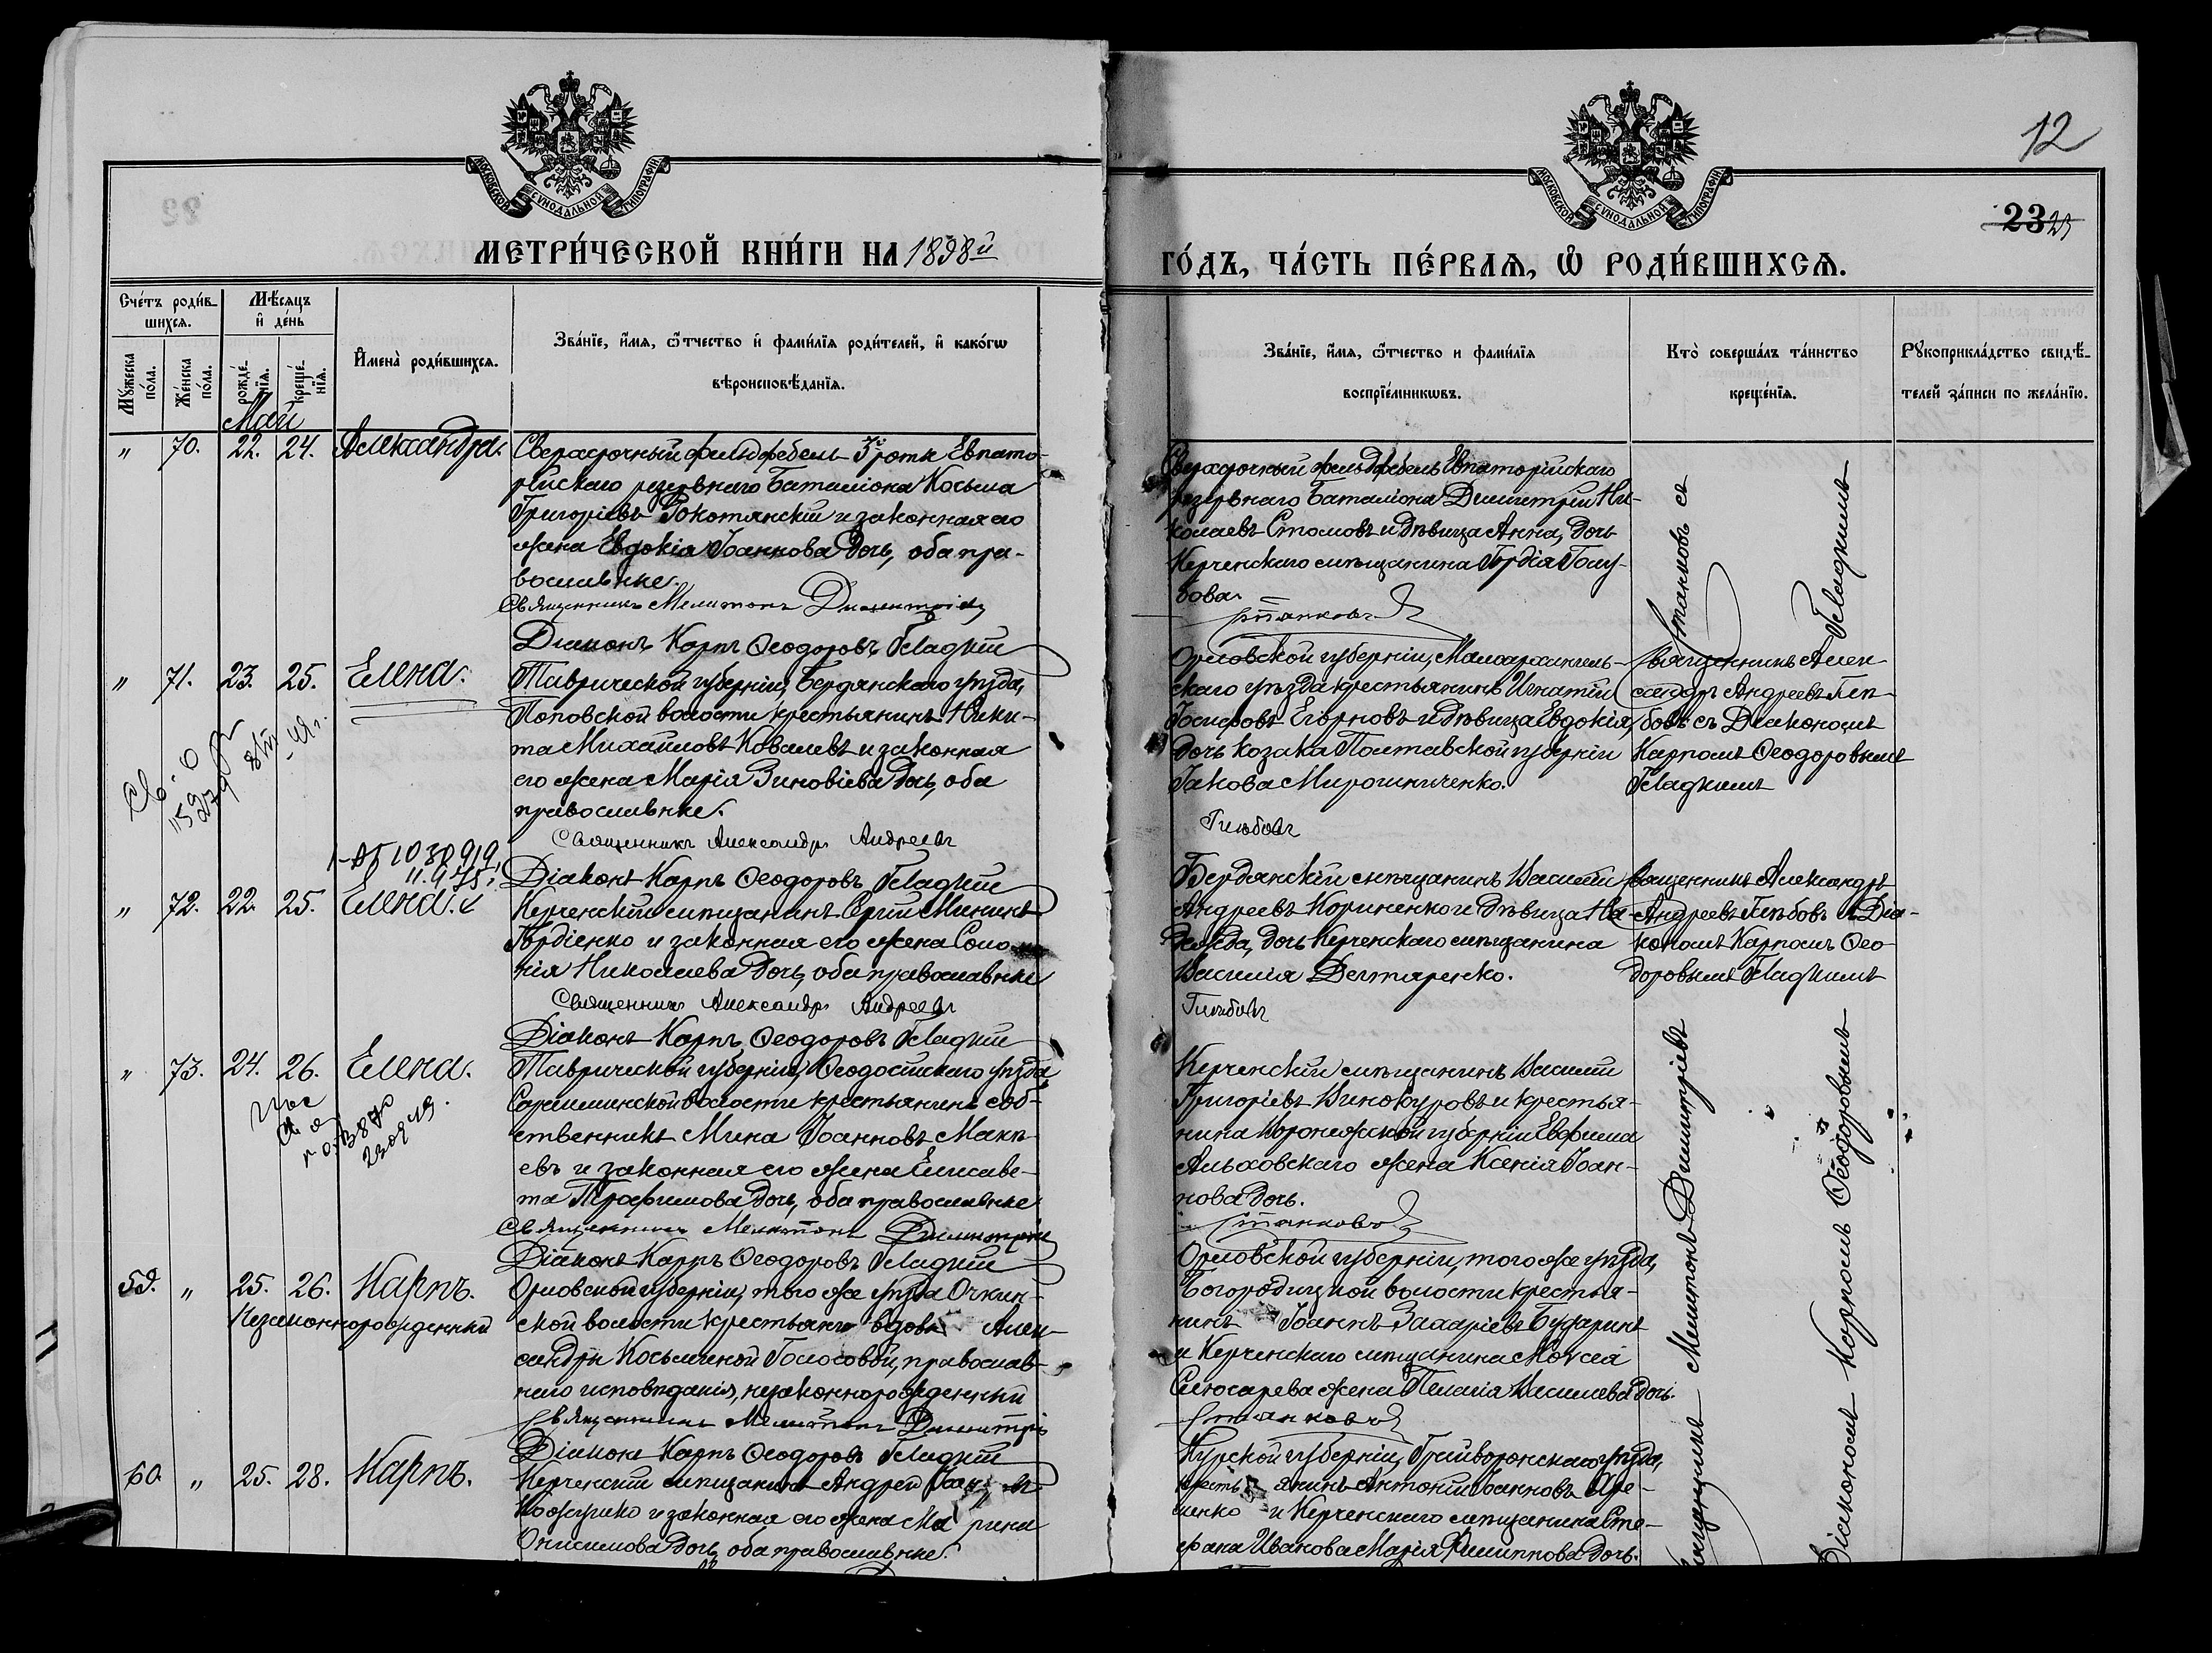 МОСКОВСКОЙ СУНОДАЛЬНОЙ ТИПОГРАФІИ
МЕТРИ́ЧЕСКОЙ КНИ́ГИ НА 1898й
Сче́тъ роди́в-
шихсѧ.
Мѣ́сѧцъ
и҆ де́нь
Мꙋ́жеска
по́ла.
Же́нска
по́ла.
рожде́-
нїѧ.
креще́-
нїѧ.
И҆мена̀ роди́вшихсѧ.
Зва́нїе, и҆́мѧ, ѻ҆́тчество и҆ фами́лїѧ роди́телей, и҆ како́гѡ
вѣроисповѣ́данїѧ.
Май
" 70. 22. 24. Александра.
Сверхсрочный фельдфебель 3й роты Евпато-
рійскаго резервнаго Баталіона Косьма
Григоріевъ Рокотянскій и законная его
жена Евдокія Іоаннова дочь, оба пра-
вославные.
Священникъ Мелитонъ Димитріев
Діаконъ Карпъ Ѳеодоровъ Гладкій
" 71. 23. 25. Елена.
Таврической губерніи, Бердянскаго уѣзда,
Поповской волости крестьянинъ Ники-
та Михайловъ Ковалевъ и законная
его жена Марія Зиновіева дочь, оба
православные.
Священникъ Александръ Андреевъ
Діаконъ Карпъ Ѳеодоровъ Гладкій
" 72. 22. 25. Елена.
Керченскій мѣщанинъ Сергій Мининъ
Гордіенко и законная его жена Соло-
нія Николаева дочь, оба православные
Священникъ Александръ Андреевъ
Діаконъ Карпъ Ѳеодоровъ Гладкій
" 73. 24. 26. Елена.
Таврической губерніи, Ѳеодосійскаго уѣзда
волости крестьянинъ соб-
ственникъ Мина Іоанновъ Макѣ-
евъ и законная его жена Елисаве-
та Трофимова дочь, оба православные
Священникъ Мелитонъ Димитріе
Діаконъ Карпъ Ѳеодоровъ Гладкій
59. " 25. 26. Карпъ.
Незаконнорожденный
Орловской губерніи, того же уѣзда
ской волости крестьян вдов Алек-
сандры Косьминой Голосовой, православ-
наго исповѣданія, незаконнорожденный
Священникъ Мелитонъ Димитріе
Діаконъ Карпъ Ѳеодоровъ Гладкій
60. " 25. 28. Карпъ.
Керченскій мѣщанинъ Андрей
и законная его жена Ма рина
Онисимова дочь, оба православные.
12
МОСКОВСКОЙ СУНОДАЛЬНОЙ ТИПОГРАФІИ
23
ГО́ДЪ, ЧА́СТЬ ПЕ́РВАѦ, Ѽ РОДИ́ВШИХСѦ.
Зва́нїе, и҆́мѧ, ѻ҆́тчество и фами́лїѧ
воспрїе́мникѡвъ.
Кто̀ соверша́лъ та́инство
креще́нїѧ.
Рꙋкоприкла́дство свидѣ́-
телей за́писи по жела́нїю.
Сверхсрочный фельдфебель Евпаторійскаго
резервнаго Баталіона Димитрій Ни-
колаевъ Столовъ и дѣвица Анна, дочь
Керченскаго мѣщанина Гордія Голу-
бова.
Станковъ
Орловской губерніи, Малоархангель-
скаго уѣзда крестьянинъ Игнатій
Іосифовъ Егорновъ и дѣвица Евдокія,
дочь козака Полтавской губерніи
Іакова Мирошниченко.
Глѣбовъ
Священникъ Алек-
сандръ Андреевъ Глѣ-
бовъ съ Діакономъ
Карпомъ Ѳеодоровымъ
Гладкимъ
Бердянскій мѣщанинъ Василій
Андреевъ Корниенко и дѣвица На-
дежда, дочь Керченскаго мѣщанина
Василія Дегтяренко.
Глѣбовъ
Священникъ Александръ
Андреевъ Глѣбовъ съ Діа-
кономъ Карпомъ Ѳео-
доровымъ Гладкимъ
Керченскій мѣщанинъ Василій
Григоріевъ Винокуровъ и крестья-
нина Воронежской губерніи Евфима
Альховскаго жена Ксенія Іоан-
нова дочь.
Станковъ
Орловской губерніи, того же уѣзда,
Богородицкой волости крестья-
нинъ Іоаннъ Захаріевъ Бухаринъ
и Керченскаго мѣщанина Моѵсея
Слюсарева жена Пелагія Василіева дочь.
Станковъ
Курской губерніи, Грайворонскаго уѣзда,
кресть янинъ Антоній Іоанновъ
и Керченскаго мѣщанина Сте-
фана Иванова Марія Филиппова дочь.
Станковъ съ
Гладкимъ
Священникъ Мелитонъ Димитріевъ
Діакономъ Карпомъ Ѳеодоровымъ